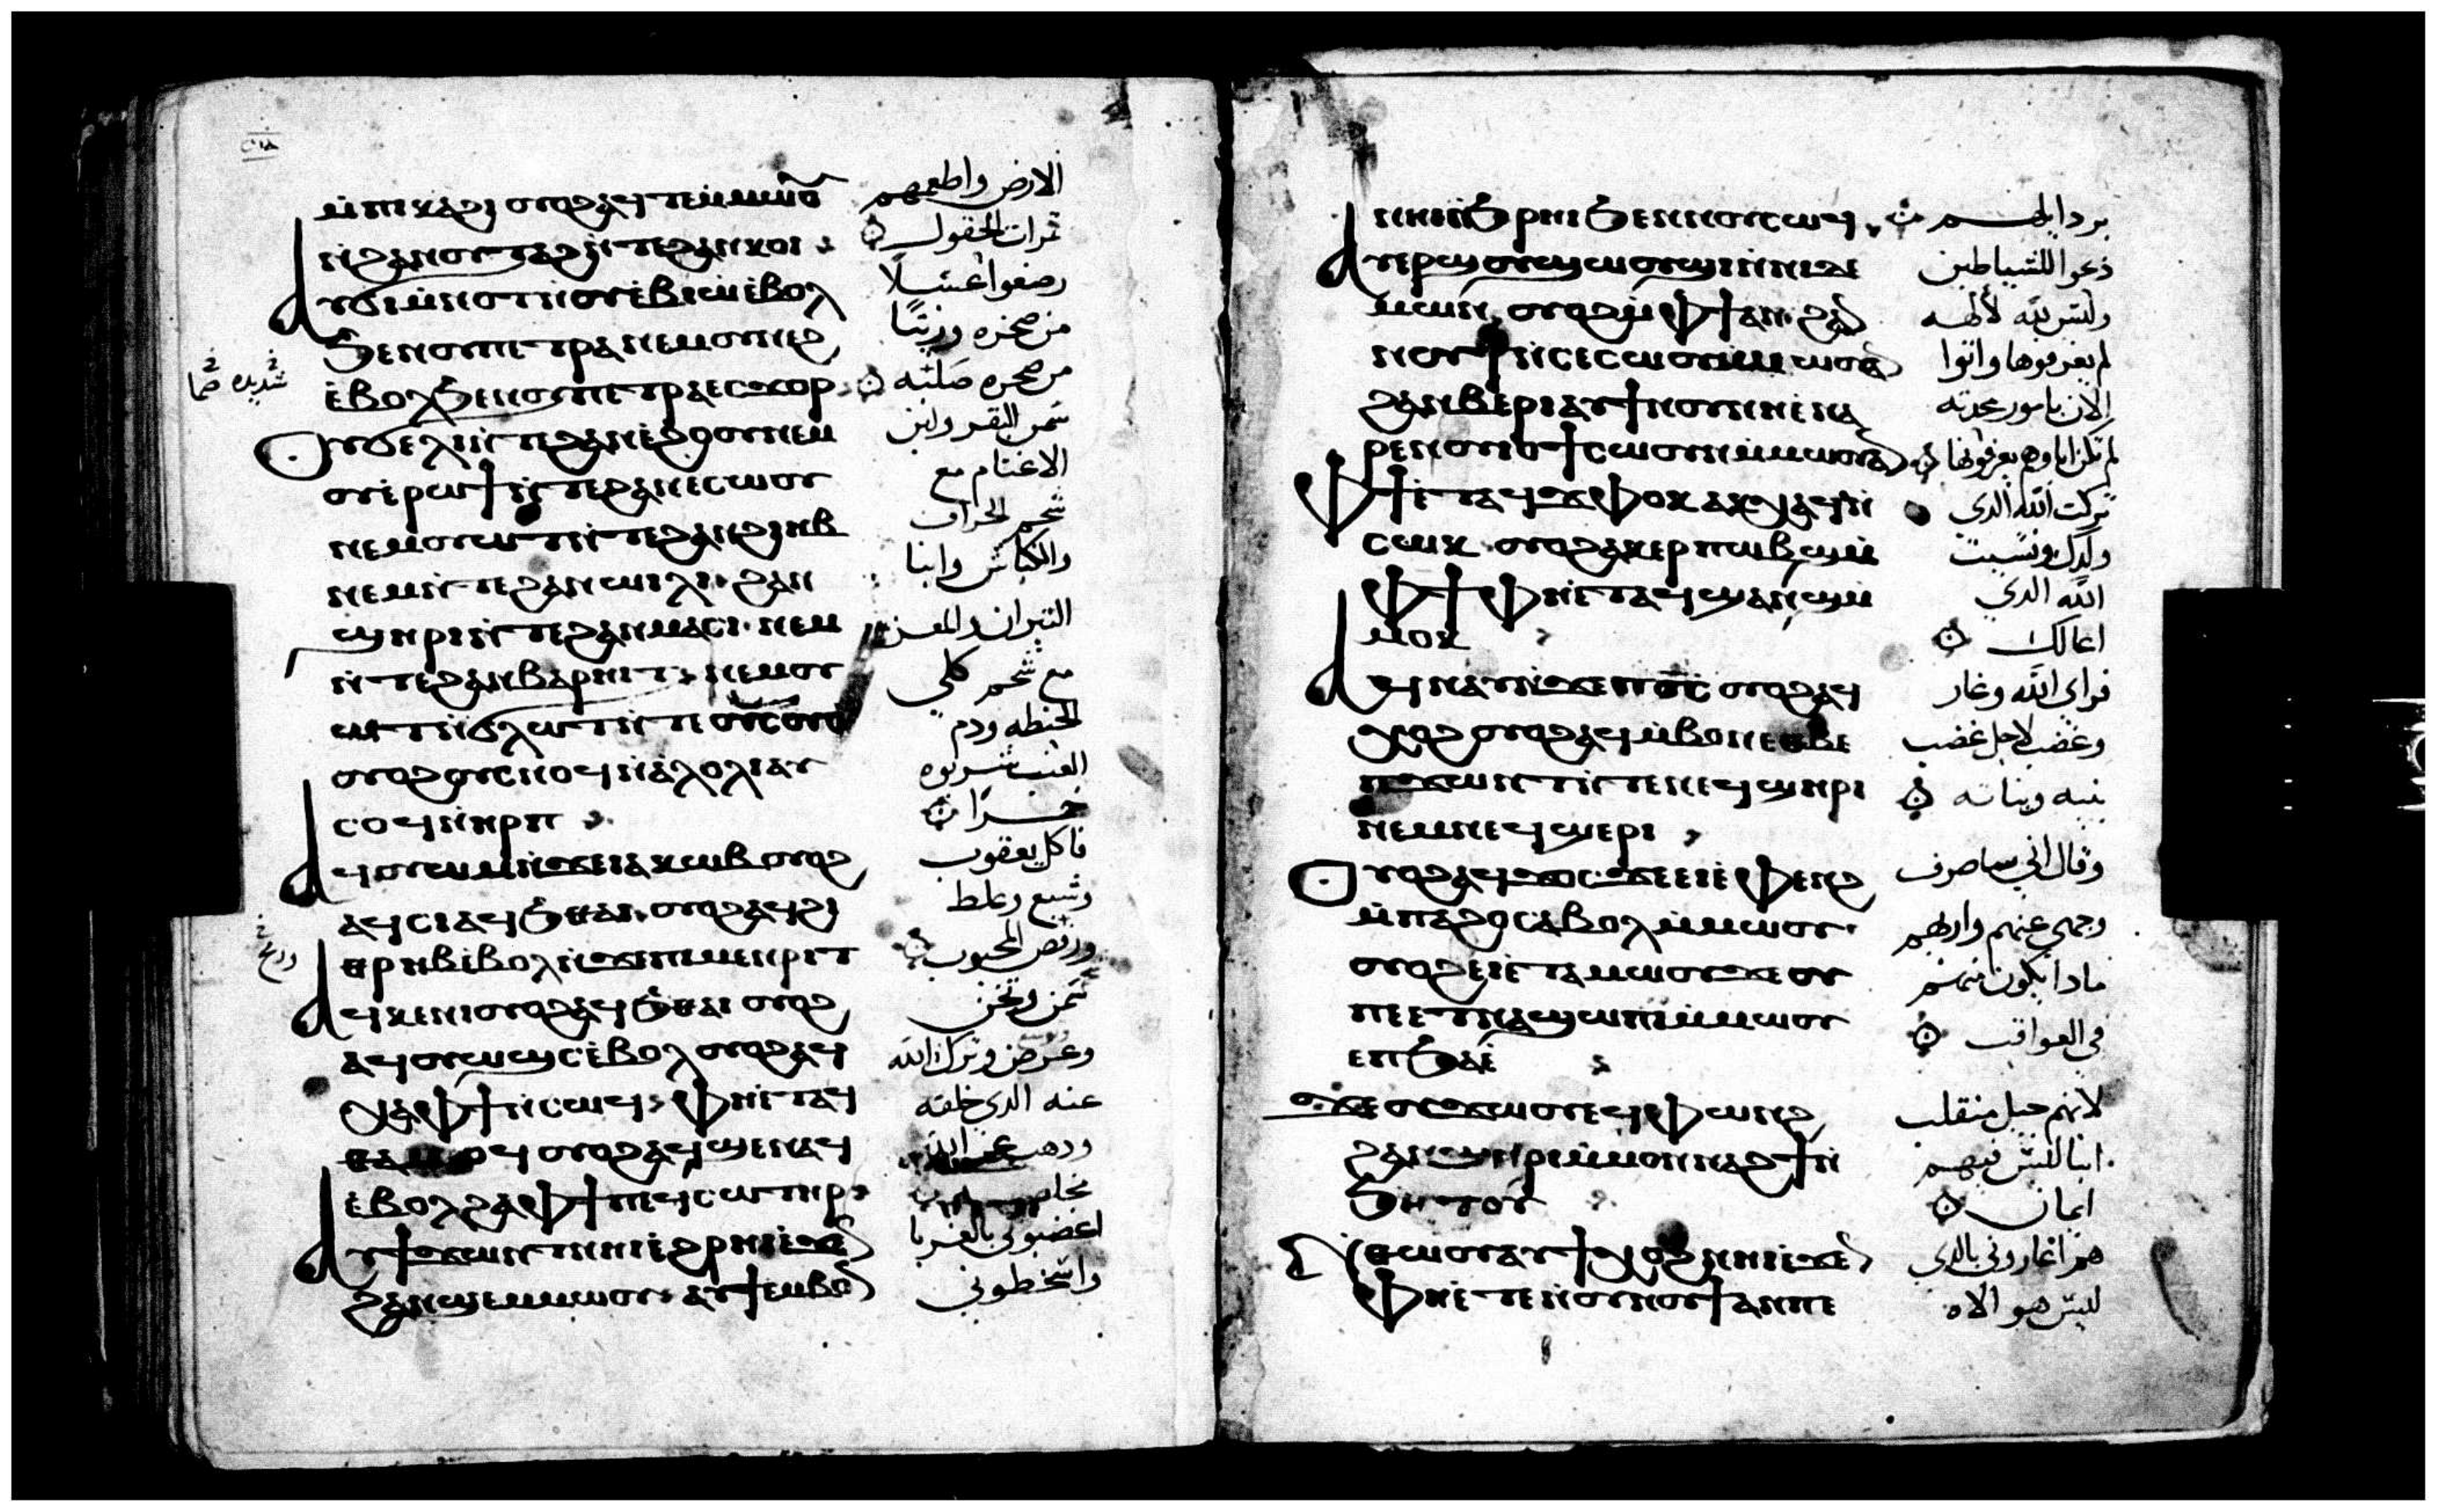 ⲙ̀ⲡⲓⲕⲁϩⲓ ⲟⲩⲟϩ ⲁϥⲧⲉⲙⲙⲱⲟⲩ
ⲛ̀ϩⲁⲛⲟⲩⲧⲁϩ ⲛ̀ⲧⲉϩⲁⲛⲕⲟⲓ
ⲁⲩϭⲓ ⲙ̀ⲙⲟⲧⲛ̀ⲟⲩⲉⲃⲓⲱ ⲉ̀ⲃⲟⲗ
ϧⲉⲛⲟⲩⲡⲉⲧⲣⲁ ⲛⲉⲙⲟⲩⲛⲉϩ
ⲉ̀ⲃⲟⲗϧⲉⲛⲟⲩⲡⲉⲧⲣⲁ ⲉⲥϫⲟⲣ
ⲟⲩϭⲉⲗⲓ ⲛ̀ⲧⲉϩⲁⲛⲉ̀ϩⲱⲟⲩ ⲛⲉⲙ
ⲟⲩⲉ̀ⲣⲱϯ ⲛ̀ⲧⲉϩⲁⲛⲉⲥⲱⲟⲩ
ⲛⲉⲙⲟⲩⲱⲧ ⲛ̀ⲧⲉϩⲁⲛϩⲓⲏⲃ
ⲛⲉⲙⲛ̀ⲧⲉϩⲁⲛⲱⲓⲗⲓ ϩⲁⲛ
ϣⲏⲣⲓ ⲛ̀ⲧⲉϩⲁⲛⲙⲁⲥⲓ ⲛⲉⲙ
ⲛ̀ⲧⲉϩⲁⲛⲃⲁⲣⲏⲓⲧ ⲛⲉⲙⲟⲩ
ⲱⲧ ⲛ̀ϭⲗⲱⲧ ⲛ̀ⲧⲉ ⲟⲩⲥⲟⲩⲟ
ⲟⲩⲟϩ ⲟⲩⲥⲛⲟϥ ⲛ̀ⲁⲗⲟⲗⲓ ⲁⲩ
ⲥⲟϥ ⲛ̀ⲏⲣⲡ
ⲁϥⲟⲩⲱⲙ ⲛ̀ϫⲉⲓⲁⲕⲱⲃ ⲟⲩⲟϩ
ⲁϥⲥⲓ ⲁϥϧⲑⲁⲓ ⲟⲩⲟϩ ⲁϥϩⲓ
ⲉ̀ⲃⲟⲗ ⲛ̀ϫⲉⲡⲓⲙⲉⲛⲣⲓⲧ
ⲁϥⲕⲉⲛⲓ ⲟⲩⲟϩ ⲁϥϧⲑⲁⲓ ⲟⲩⲟϩ
ⲁϥⲟⲩⲱϣⲥ ⲉ̀ⲃⲟⲗ ⲟⲩⲟϩ ⲁϥ
ⲭⲁⲫϯ ⲛ̀ⲥⲱϥ ⲫⲏⲉ̀ⲧⲁϥ
ⲑⲁⲙⲓⲟϥ ⲟⲩⲟϩ ⲁϥϣⲉⲛⲁϥ
ⲉ̀ⲃⲟⲗϩⲁ ⲫϯ ⲡⲉϥⲥⲱⲧⲏⲣ
ⲁⲩϯϫⲱⲛⲧ ⲛⲏⲓ ⲉ̀ϩⲣⲏⲓ ⲉ̀ϫⲉⲛ
ϩⲁⲛϣⲉⲙⲙⲱⲟⲩ ⲁⲩϯⲉⲙⲃⲟⲛ
الارض واطعمهم
ثمرات الحقول
رضعوا عسلا
من صخره وزيتا
من صخره صلبه
سمن البقر ولبن
الاغنام مع
شحم الخراف
والكباش وابنا
التيران والمعز
مع شحم كلي
الحنطه ودم
العنب شربوه
خمرا
فاكل يعقوب
وشبع وغلط
ورفص المحبوب
سمن وتخن
وعرض وترك الله
عنه الدى خلقه
ودهب عن الله
اغضبوني بالغربا
واسخطوني
ⲛⲏⲓ ⲛ̀ϧⲣⲏⲓ ϧⲉⲛⲛⲟⲩⲥⲱϥ
ⲁⲩⲉⲣϣⲟⲩϣⲱⲟⲩϣⲓ ⲛ̀ⲛⲓⲇⲉ
ⲙⲱⲛ ⲟⲩⲟϩ ⲙ̀ⲫϯ ⲁⲛ ϩⲁⲛ
ⲛⲟⲩϯ ⲛ̀ⲥⲉⲥⲱⲟⲩⲛ ⲙ̀ⲙⲱⲟⲩ ⲁⲛ
ϩⲁⲛⲃⲉⲣⲓ ⲁⲩⲓ̀ ϯⲛⲟⲩ ⲛⲏⲉ̀ⲛⲁ
ⲣⲉⲛⲟⲩⲓⲟϯ ⲥⲱⲟⲩⲛ ⲙ̀ⲙⲱⲟⲩ ⲁⲛ
ⲫϯ ⲉ̀ⲧⲁϥϫⲫⲟⲕ ⲁⲕⲭⲁϥ ⲛ̀
ⲥⲱⲕ ⲟⲩⲟϩ ⲁⲕⲉⲣⲡⲱⲃϣ ⲙ̀
ⲫϯ ⲫⲏⲉ̀ⲧⲁϥϣⲁⲛⲟⲩϣ ⲙ̀
ⲙⲟⲕ
ⲁϥⲛⲁⲩ ⲛ̀ϫⲉⲡⲟ̅ⲥ̅ ⲟⲩⲟϩ ⲁϥ
ⲭⲟϩ ⲟⲩⲟϩ ⲁϥⲙ̀ⲃⲟⲛ ⲉⲑⲃⲉ
ⲡϫⲱⲛⲧ ⲛ̀ⲧⲉⲛⲉϥϣⲏⲣⲓ
ⲛⲉⲙⲛⲉϥϣⲉⲣⲓ
ⲟⲩⲟϩ ⲁϥϫⲟⲥ ϫⲉ ⲉⲓⲉ̀ⲫⲉⲛϩ
ⲙ̀ⲡⲁϩⲟ ⲥⲁⲃⲟⲗ ⲙ̀ⲙⲱⲟⲩ
ⲟⲩⲟϩ ⲉⲓⲉ̀ⲧⲁⲙⲱⲟⲩ ϫⲉ ⲟⲩ
ⲡⲉⲧⲛⲁϣⲱⲡⲓ ⲙ̀ⲙⲱⲟⲩ
ⲉⲡϧⲁⲉ̀
ϫⲉ ⲟⲩϫⲱⲟⲩ ⲉϥⲫⲱⲛϩ
ϩⲁⲛϣⲏⲣⲓ ⲙ̀ⲙⲟⲛ ⲛⲁϩϯ ⲛ̀
ϧⲏⲧⲟⲩ
ⲛ̀ⲑⲱⲟⲩ ⲁⲩϯⲭⲟϩ ⲛⲏⲓ ⲉ̀ϫⲉⲛ
ⲫⲏⲉ̀ⲧⲉⲛⲟⲩⲛⲟⲩϯ ⲁⲛ ⲡⲉ
بردايلهم
دبحوا للشياطين
وليس لله لالهه
لم يعرفوها واتوا
الان بامور محدثه
لم تكن اباوهم يعرفونها
تركت الله الدي
ولدك ونسيت
الله الدي
اعالك
فراى الله وغار
وغضب لاجل غضب
بنيه وبناته
وقال اني ساصرف
وجهي عنهم واريهم
مادا يكون منهم
في العواقب
لانهم جيل منقلب
ابنا ليس فيهم
ايمان
هم اغاروني بالدي
ليس هو الاه